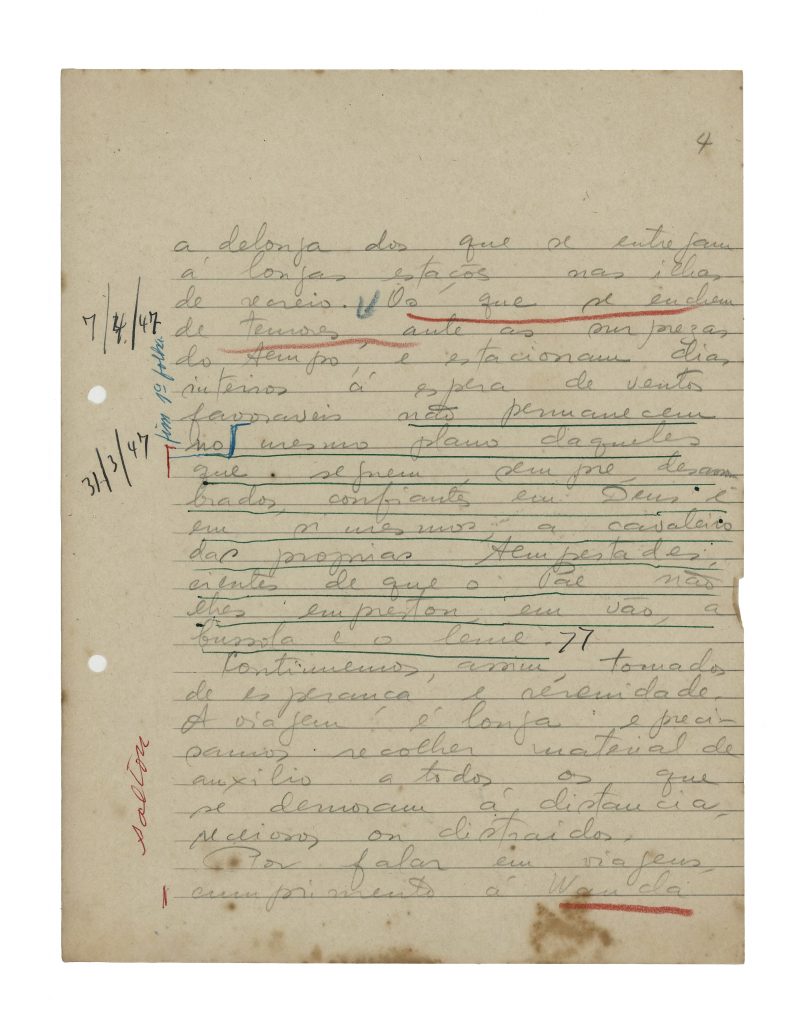 4
a delonga dos que se entregam
á longas estações nas ilhas
de recreio. Os que se enchem
de temores, ante as surprezas
do tempo, e estacionam dias
inteiros á espera de ventos
favoraveis não permanecem
no mesmo plano daqueles
que seguem, sempre, desassom-
brados, confiantes em Deus e
em si mesmos, a cavaleiro
das proprias tempestades,
cientes de que o Pae não
lhes emprestou, em vão, a
bussola e o leme.
Continuemos, assim, tomados
de esperança e serenidade.
A viagem é longa e preci-
samos recolher material de
auxilio a todos os que
se demoram á distancia,
receiosos ou distraidos.
Por falar em viagens,
cumprimento á Wanda
7/4/47
fim 1ª folha
31/3/47
saltou